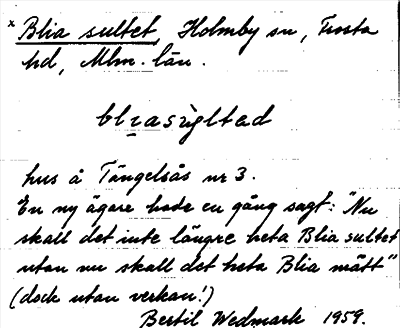 x Blia sultet, Holmby sn, Frosta
hd, Mlm. län.
hus å Tängelsås nr 3.
En ny ägare hade en gång sagt: "Nu
skall det inte längre heta Blia sultet
utan nu skall det heta Blia mätt"
(dock utan verkan!)
Bertil Wedmark 1959.